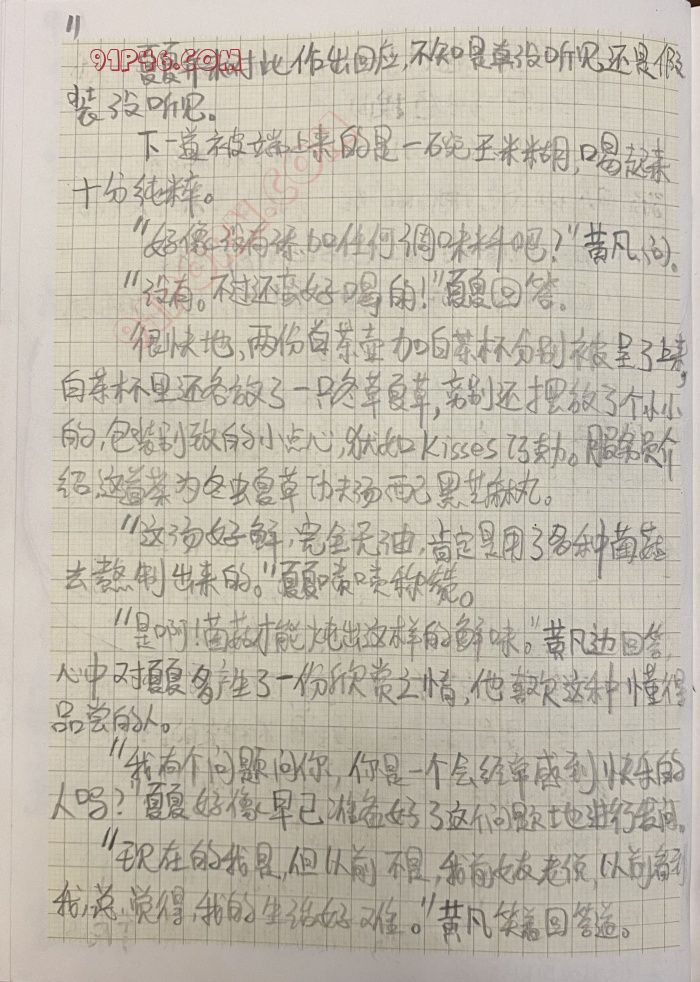 11
夏夏并未对此作出回应,不知是真没听见,还是假
装没听见。
下一道被端上来的是一碗玉米糊,喝起来
十分纯粹。
"好像没有添加任何调味料吧?"黄凡问。
"没有。不过还蛮好喝的!"夏夏回答。
很快地,两份白茶壶加白茶杯分别被呈了上来,
白茶杯里还各放了一只冬草夏草,旁别还摆放了个小小
的,包装别致的小点心,犹如Kisses巧克力。服务员介
绍,这道菜为冬虫夏草功夫汤配黑芝麻丸。
"这汤好鲜,完全无油,肯定是用了各种菌菇
去熬制出来的。"夏夏啧啧称赞。
"是啊!菌菇才能炖出这样的鲜味。"黄凡边回答,
心中对夏夏多产生了一份欣赏之情,他喜欢这种懂得
品尝的人。
"我有个问题问你,你是一个会经常感到快乐的
人吗?"夏夏好像早已准备好了这个问题地进行发问。
"现在的我是,但以前不是,我前女友老说,以前看到
我,总觉得,我的生活好难。"黄凡笑着回答道。